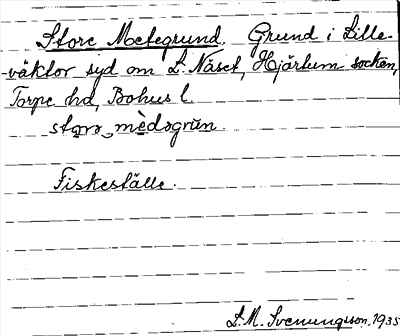 Store Metegrund. Grund i Lille-
väktor syd om L. Näset, Hjärtum socken,
Torpe hd, Bohus l.
storə mèdəgrun.
Fiskeställe.
L.M. Svenungsson. 1935